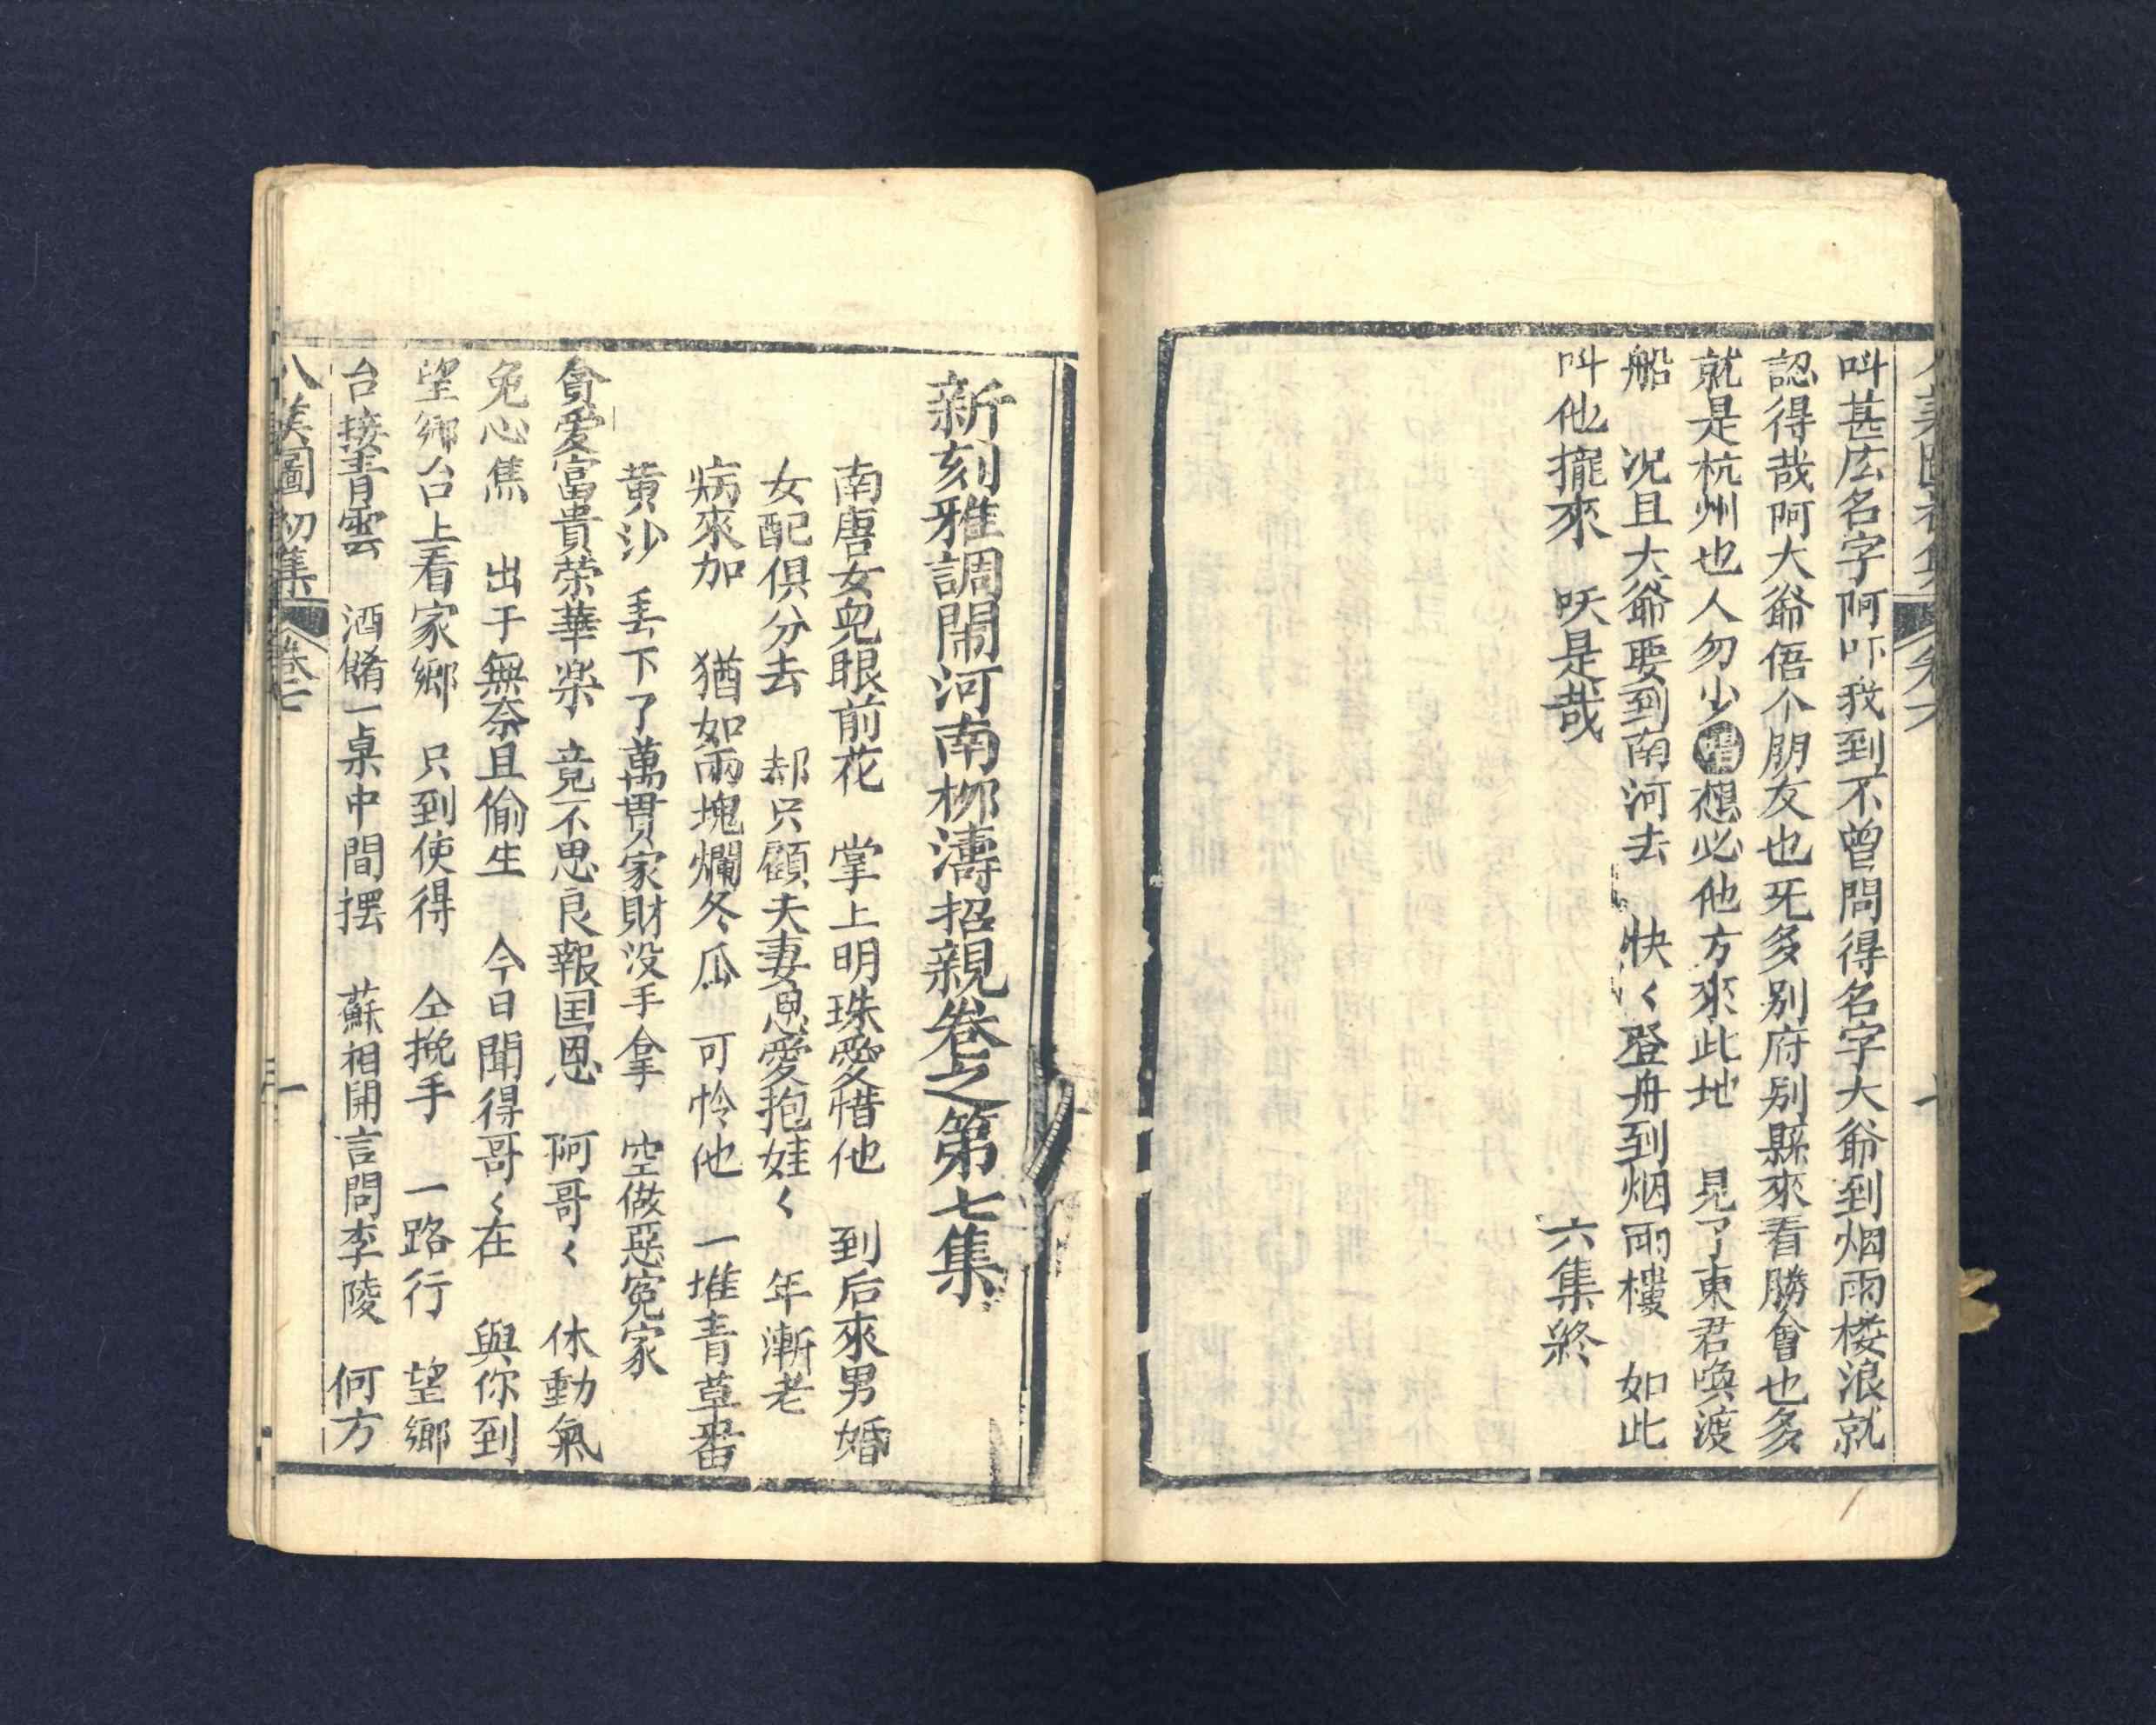 叫甚広名字阿吓我到不曾問得名字大爺到烟雨楼浪就
認得哉阿大爺㑄个朋友也死多别府别縣來看勝會也多
就是杭州也人勿少 想必他方來此地 見了東君喚渡
船 况且大爺要到南河去 快く登舟到烟雨樓 如此
叫他攏來 呋是哉 六集終
新刻雅調鬧河南柳濤招親卷之第七集
南唐女兒眼前花 掌上明珠愛惜他 到后來男婚
女配俱分去 却只顧夫妻恩愛抱娃く 年漸老
病來加 猶如兩塊爛冬瓜 可怜他 一堆青草畨
黄沙 丢下了萬貫家財没手拿 空做惡寃家
貪愛富貴荣華楽 竟不思良報国恩 阿哥く 休動氣
免心焦 出于無奈且偷生 今日聞得哥く在 與你到
望鄉台上看家鄉 只到使得 仝挽手 一路行 望鄉
台接青雲 酒餚一桌中間摆 蘇相開言問李陵 何方
八美圖初集 卷七 一